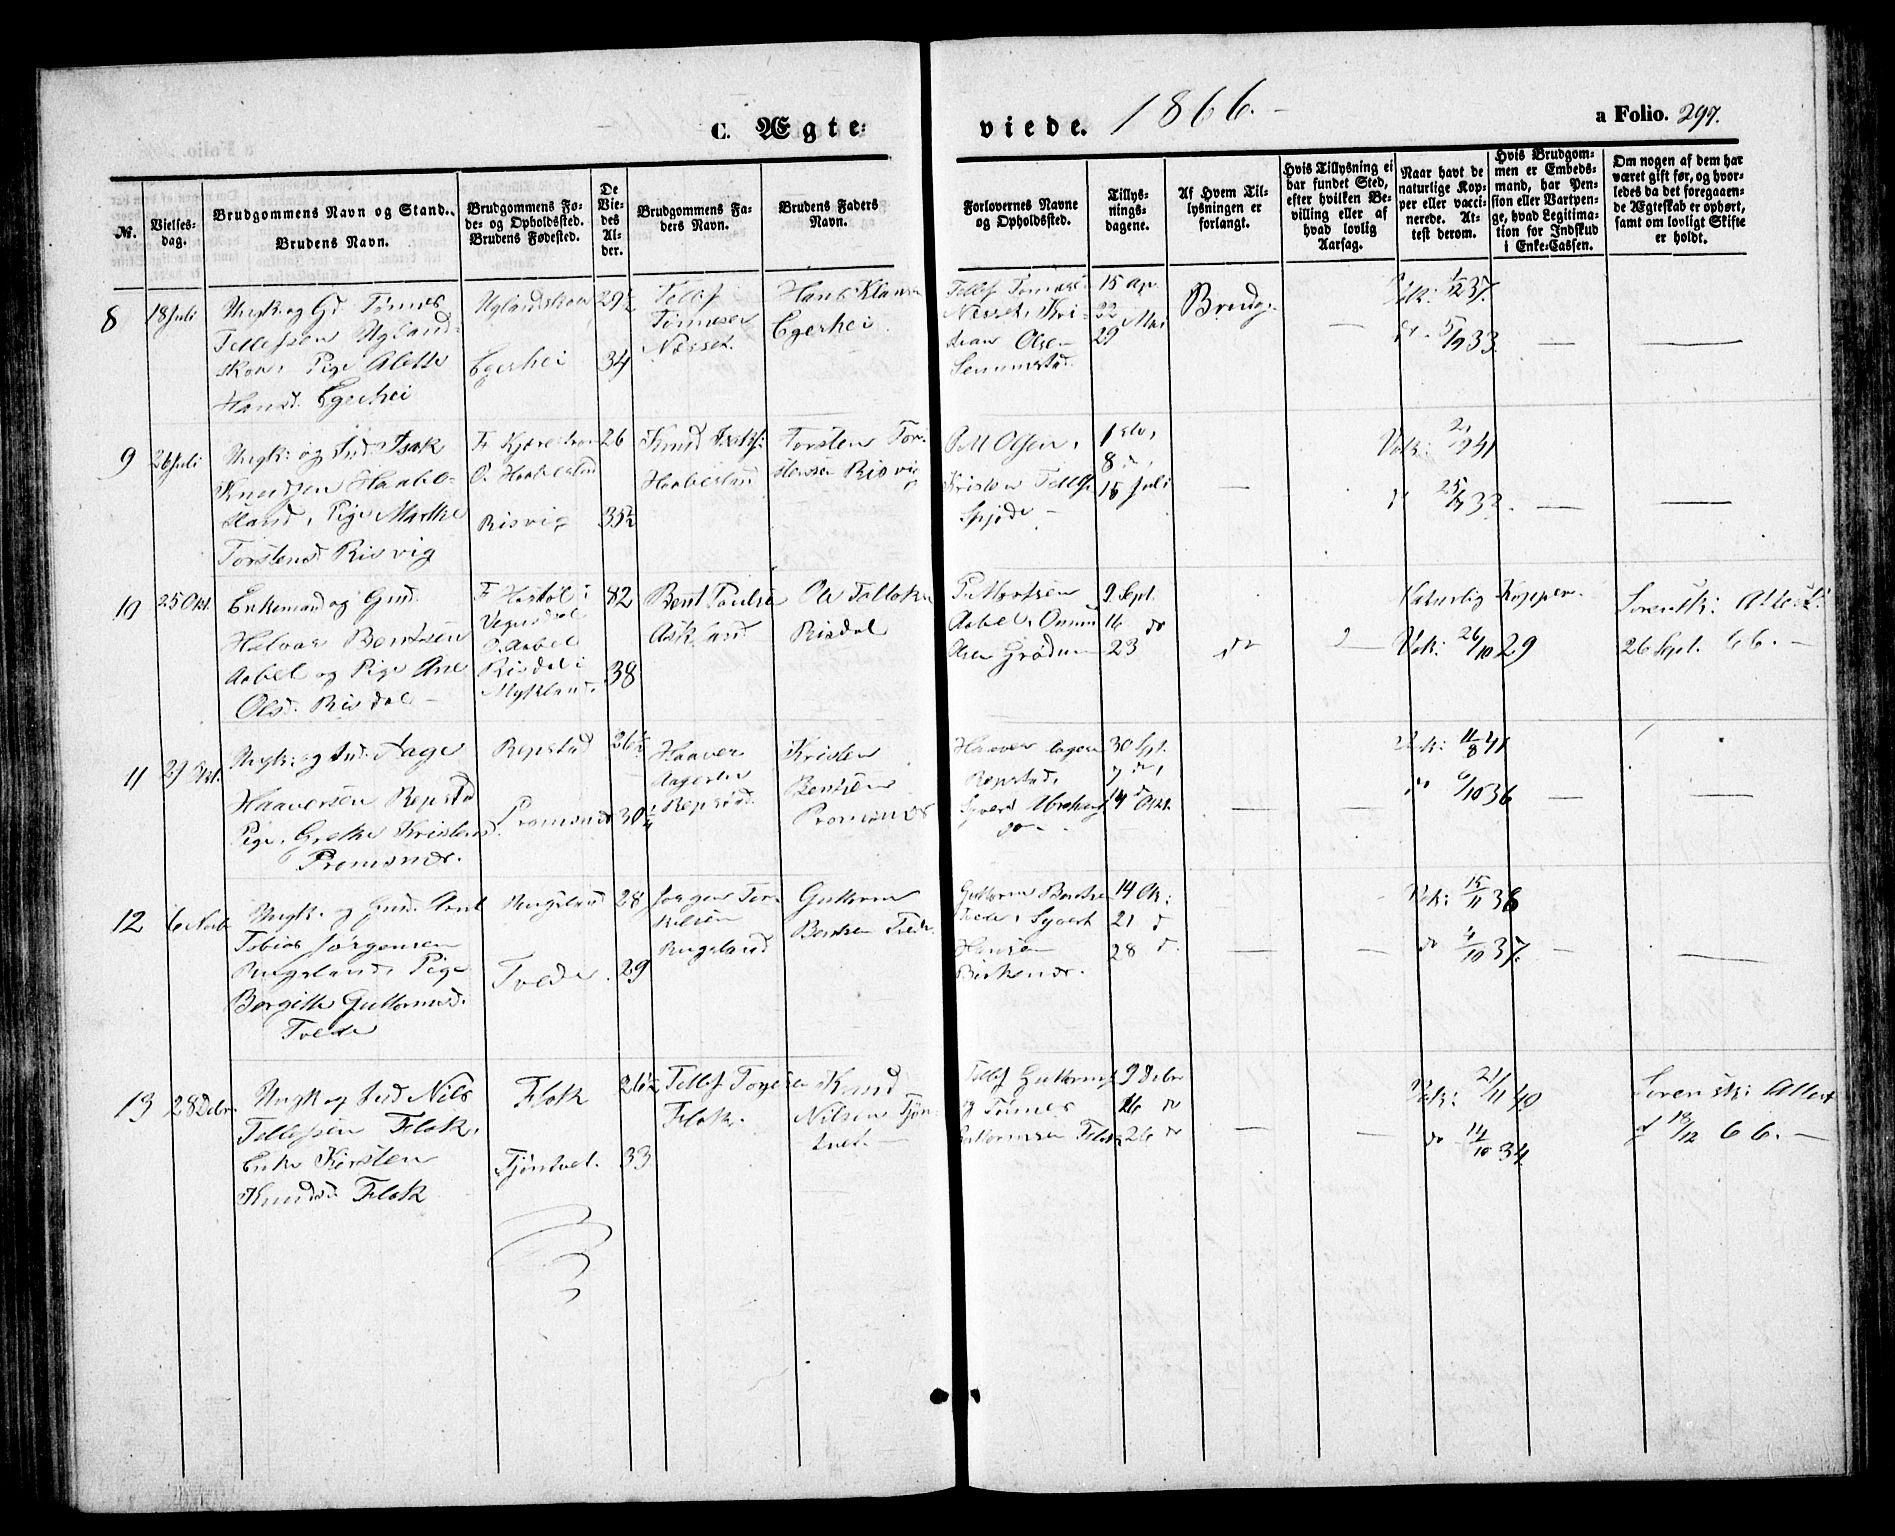 C. Ægte=
viede.
1866.-
a Folio. 297.
№.
Vielses-
dag.
Brudgommens Navn og Stand.
Brudens Navn.
Brudgommens Fø-
de- og Opholdssted.
Brudens Fødested.
De
Vie-
des
Al-
der.
Brudgommens Fa-
ders Navn.
Brudens Faders
Navn.
Forlovernes Navne
og Opholdssted.
Tillys-
nings-
dagene.
Af Hvem Til-
lysningen er
forlangt.
Hvis Tillysning ei
har fundet Sted,
efter hvilken Be-
villing eller af
hvad lovlig
Aarsag.
Naar havt de
naturlige Kop-
per eller vacci-
nerede. At-
test derom.
Hvis Brudgom-
men er Embeds-
mand, har Pen-
sion eller Vartpen-
ge, hvad Legitima-
tion for Indskud
i Enke-Cassen.
Om nogen af dem har
været gift før, og hvor-
ledes da det foregaaen-
de Ægteskab er ophørt,
samt om lovligt Skifte
er holdt.
8
18 Juli
Ungk. og Gd. Tømes
Tellefsen Ugland-
skov, Pige Alette
Hansd. Egerhei
Uglandskov
Egerhei
29½
34
Tellef
Tømesen
Næsset
Hans Klausen
Egerhei.
Tellef Tømesen
Næsset, Kri-
stian Olsen
15 Ap.
22
29 Mai
Brudg.
Vak: 1/12 37.
do. 5/9 33.
9
26 Juli
Ungk: og Ind. Isak
Knudsen Haabe-
sland, Pige Marthe
Torstensd. Risvig
F. Kjærestrøm
O. Haabesland
Risvig
26
35½
Knud Isaks:
Haabesland
Torsten Tor-
stensen Risvig
Ole Olsen,
Kristen Tellefs.
1
8 d.
15 Juli
Vak: 2/9 41
d 25/9 33.
10
25 Okt.
Enkemand og Gmd.
Halvor Bentsen
Aabel og Pige Ane
Olsd. Risdal
F. Hastøl i
Vegusdal
O. Aabel
Risdal i
Mykland.
82
38
Bent Paulsen
Askland
Ole Tellefsen
Risdal
Aabel, Omund
Olsen Grødum
9. Sept.
16 do
23
do
Naturlig Kopper.
Vak: 26/10 29
Sorensk: Attest
26 Sept. 66.-
11
27 Okt.
Ungk: og Ind. Aage
Haaversen Repstad
Pige Grethe Kristensd.
Promsnes.
Repstad
Promsnes
26½
30¼
Haaver
Aagesen
Repstad
Kristen
Bentsen
Promsnes
Haaver Aagesen
Repstad,
Syvert Abrahams.
do-
30 Spt.
7 do,
14 d Okt.
Vak: 11/8 41
do 6/10 36
12
6 Novb
Ungk. og Gmd. Arnt
Tobias Jørgensen
Rugsland, Pige
Børgithe Guttormsd.
Tvede
Rugsland
Tvede
28
29
Jørgen Ter-
kelsen
Rugsland
Guttorm
Bentsen Tvede.
Guttorm Bentsen
Tvede, Syvert
Hansen
Birkenes.
14 Ok:
21 d
28 d.
Vak: 15/11 38
do 4/10 37.
13
28 Debr.
Ungk og Ind Nils
Tellefsen Flak,
Enke Kirsten
Knudsd. Flak
Flak
Tjøntvet.
26½
33
Tellef Torgesen
Flak.
Knud
Nilsen Tjøn-
tvet.
Tellef Guttorms.
og Tømes
Guttormsen Flak
9 Debr
16 do
26 do
Vak: 21/11 49
do 14/10 34.
Sorensk: Attest
af 19/12 66.-